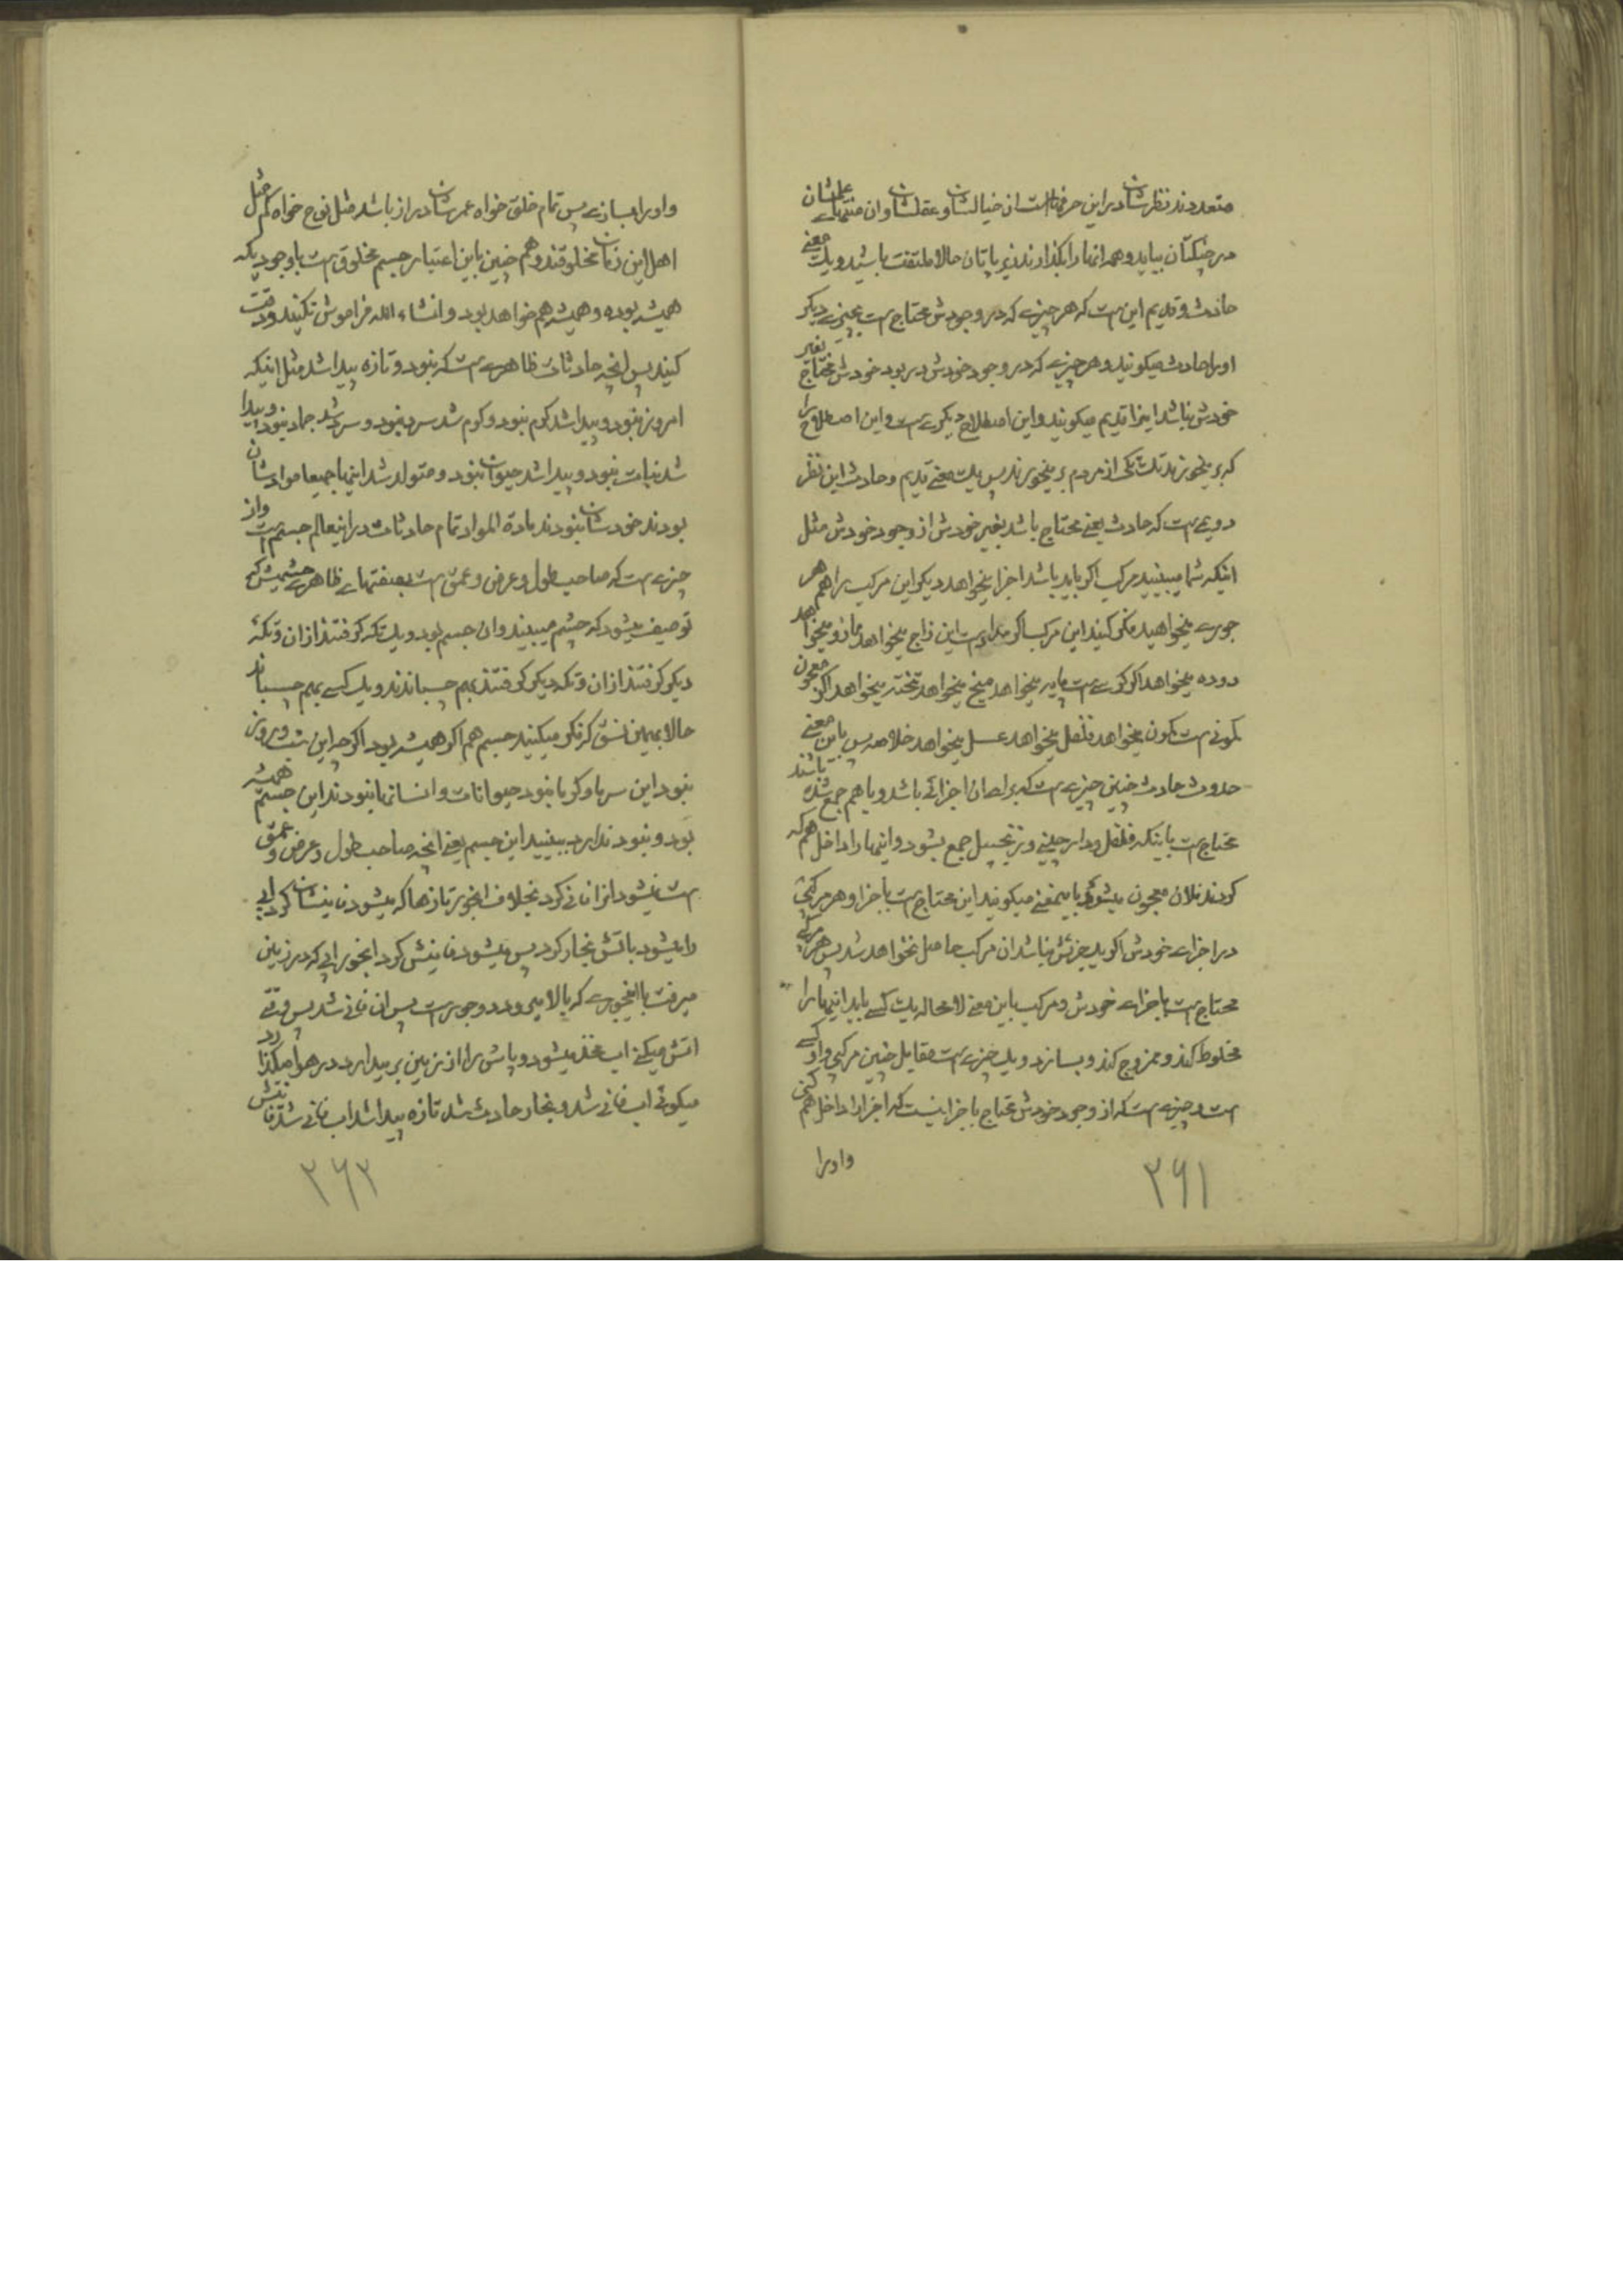 متعددند نظرشان در این حرفها است از خیالشان و عقلشان و آن منتهای علمشان
در چنگتان بیاید و همه آنها را بگذارند زیر پاتان حالا ملتفت باشید و یک معنی
حادث و قدیم این است که هر چیزی که در وجودش محتاج است بچیزی دیگر
او را حادث میگویند و هر چیزی که در وجود خودش در بود خودش محتاج بغیر
خودش نباشد اینرا قدیم میگویند و این اصطلاح دیگری است و این اصطلاح را
که بر میخورند تک تکی از مردم بر میخورند پس یک معنی قدیم و حادث این نظر
دویمی است که حادث یعنی محتاج باشد بغیر خودش از وجود خودش مثل
اینکه شما میبینید مرکب اگر باید باشد اجزا میخواهد دیگر این مرکب را هم هر
جوری میخواهید فکر کنید این مرکب اگر مداد است این زاج میخواهد مازو میخواهد
دوده میخواهد اگر کرسی است پایه میخواهد میخ میخواهد تخته میخواهد اگر معجون
کمونی است کمون میخواهد فلفل میخواهد عسل میخواهد خلاصه پس باین معنی
حدوث حادث چنین چیزی است که برای آن اجزائی باشد و با هم جمع شده باشند
محتاج است باینکه فلفل و دارچینی و زنجبیل جمع بشود و اینها را داخل هم که
کردند فلان معجون میشود باینمعنی میگویند این محتاج است باجزا و هر مرکبی
در اجزای خودش اگر یک جزئش نباشد آن مرکب حاصل نخواهد شد پس هر مرکبی
محتاج است باجزای خودش و مرکب باین معنی لامحاله یک کسی باید اینها را
مخلوط کند و ممزوج کند و بسازد و یک چیزی است مقابل چنین مرکبی و او کسی
است و چیزی است که از وجود خودش محتاج باجزا نیست که اجزا را داخل هم کنی
و او را
۳۶۱
و او را بسازی پس تمام خلق خواه عمرشان دراز باشد مثل نوح خواه کم مثل
اهل این زمان مخلوقند و هم چنین باین اعتبار جسم مخلوق است باوجودیکه
همیشه بوده و همیشه هم خواهد بود و انشاء الله فراموش نکنید و دقت
کنید پس آنچه حادثات ظاهری است که نبود و تازه پیدا شد مثل اینکه
امروز نبود و پیدا شد گرم نبود و گرم شد سرد نبود و سرد شد جماد نبود و پیدا
شد نبات نبود و پیدا شد حیوان نبود و متولد شد اینها جمیعا موادشان
بودند خودشان نبودند مادة المواد تمام حادثات در اینعالم جسم است و از
چیزی است که صاحب طول و عرض و عمق است بصفتهای ظاهری چشمیش که
توصیف میشود که چشم میبیند و آن جسم بود و یک تکه گرفتند از آن و تکهٔ
دیگر گرفتند از آن و تکه دیگر گرفتند بهم چسباندند و یک کسی بهم چسباند
حالا بهمین نسق که فکر میکنید جسم هم اگر همیشه بود اگر چه این شب و روز
نبود این سرما و گرما نبود حیوانات و انسانها نبودند این جسم همیشه
بود و نبود ندارد ببینید این جسم یعنی آنچه صاحب طول و عرض و عمق
است نمیشود او را فانی کرد بخلاف اینجور تازهها که میشود فانیشان کرد آبی
را میشود باتش بخار کرد پس میشود فانیش کرد اینجور آبی که در زمین
میرفت بااینجوری که بالا میرود دو جور است پس آن فانی شد پس وقتی
آتش میکنی آب میشود و پاش را از زمین بر میدارد در هوا میگذارد
میگوئی آب فانی شد و بخار حادث شد تازه پیدا شد آب فانی شد فانیش
۳۶۲